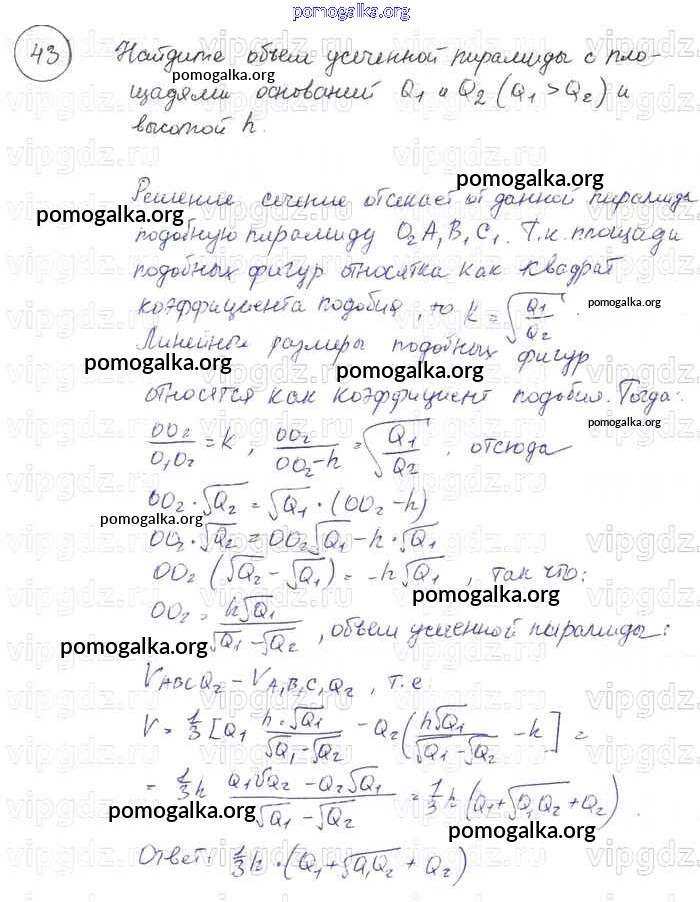 pomogalka.org
43 Найдите объем усеченной пирамиды с пло-
pomogalka.org
щадями оснований Q₁ и Q₂ (Q₁ > Q₂) и
высотой h.
Решение сечение отсекает от данной пирамиды
pomogalka.org
pomogalka.org
подобную пирамиду O₂A₁B₁C₁. Т.к. площади
подобных фигур относятся как квадрат
коэффициента подобия, то k = √(Q₁/Q₂).
pomogalka.org
Линейные размеры подобных фигур
pomogalka.org
pomogalka.org
относятся как коэффициент подобия. Тогда:
pomogalka.org
OO₂/O₁O₂ = k, OO₂/(OO₂-h) = √(Q₁/Q₂), отсюда
OO₂·√Q₂ = √Q₁·(OO₂-h)
pomogalka.org
OO₂·√Q₂ = OO₂√Q₁ - h·√Q₁
OO₂(√Q₂-√Q₁) = -h√Q₁, так что:
pomogalka.org
OO₂ = h√Q₁/(√Q₁-√Q₂), объем усеченной пирамиды:
pomogalka.org
V ABCQ₂ - V A₁B₁C₁Q₂, т.е.
V = 1/3 [Q₁ h·√Q₁/(√Q₁-√Q₂) - Q₂(h√Q₁/(√Q₁-√Q₂) - h] =
= 1/3 h (Q₁√Q₂ - Q₂√Q₁)/(√Q₁-√Q₂) = 1/3 h (Q₁+√Q₁Q₂+Q₂)
pomogalka.org
pomogalka.org
Ответ: 1/3 h·(Q₁+√Q₁Q₂+Q₂)
vipgdz.ru